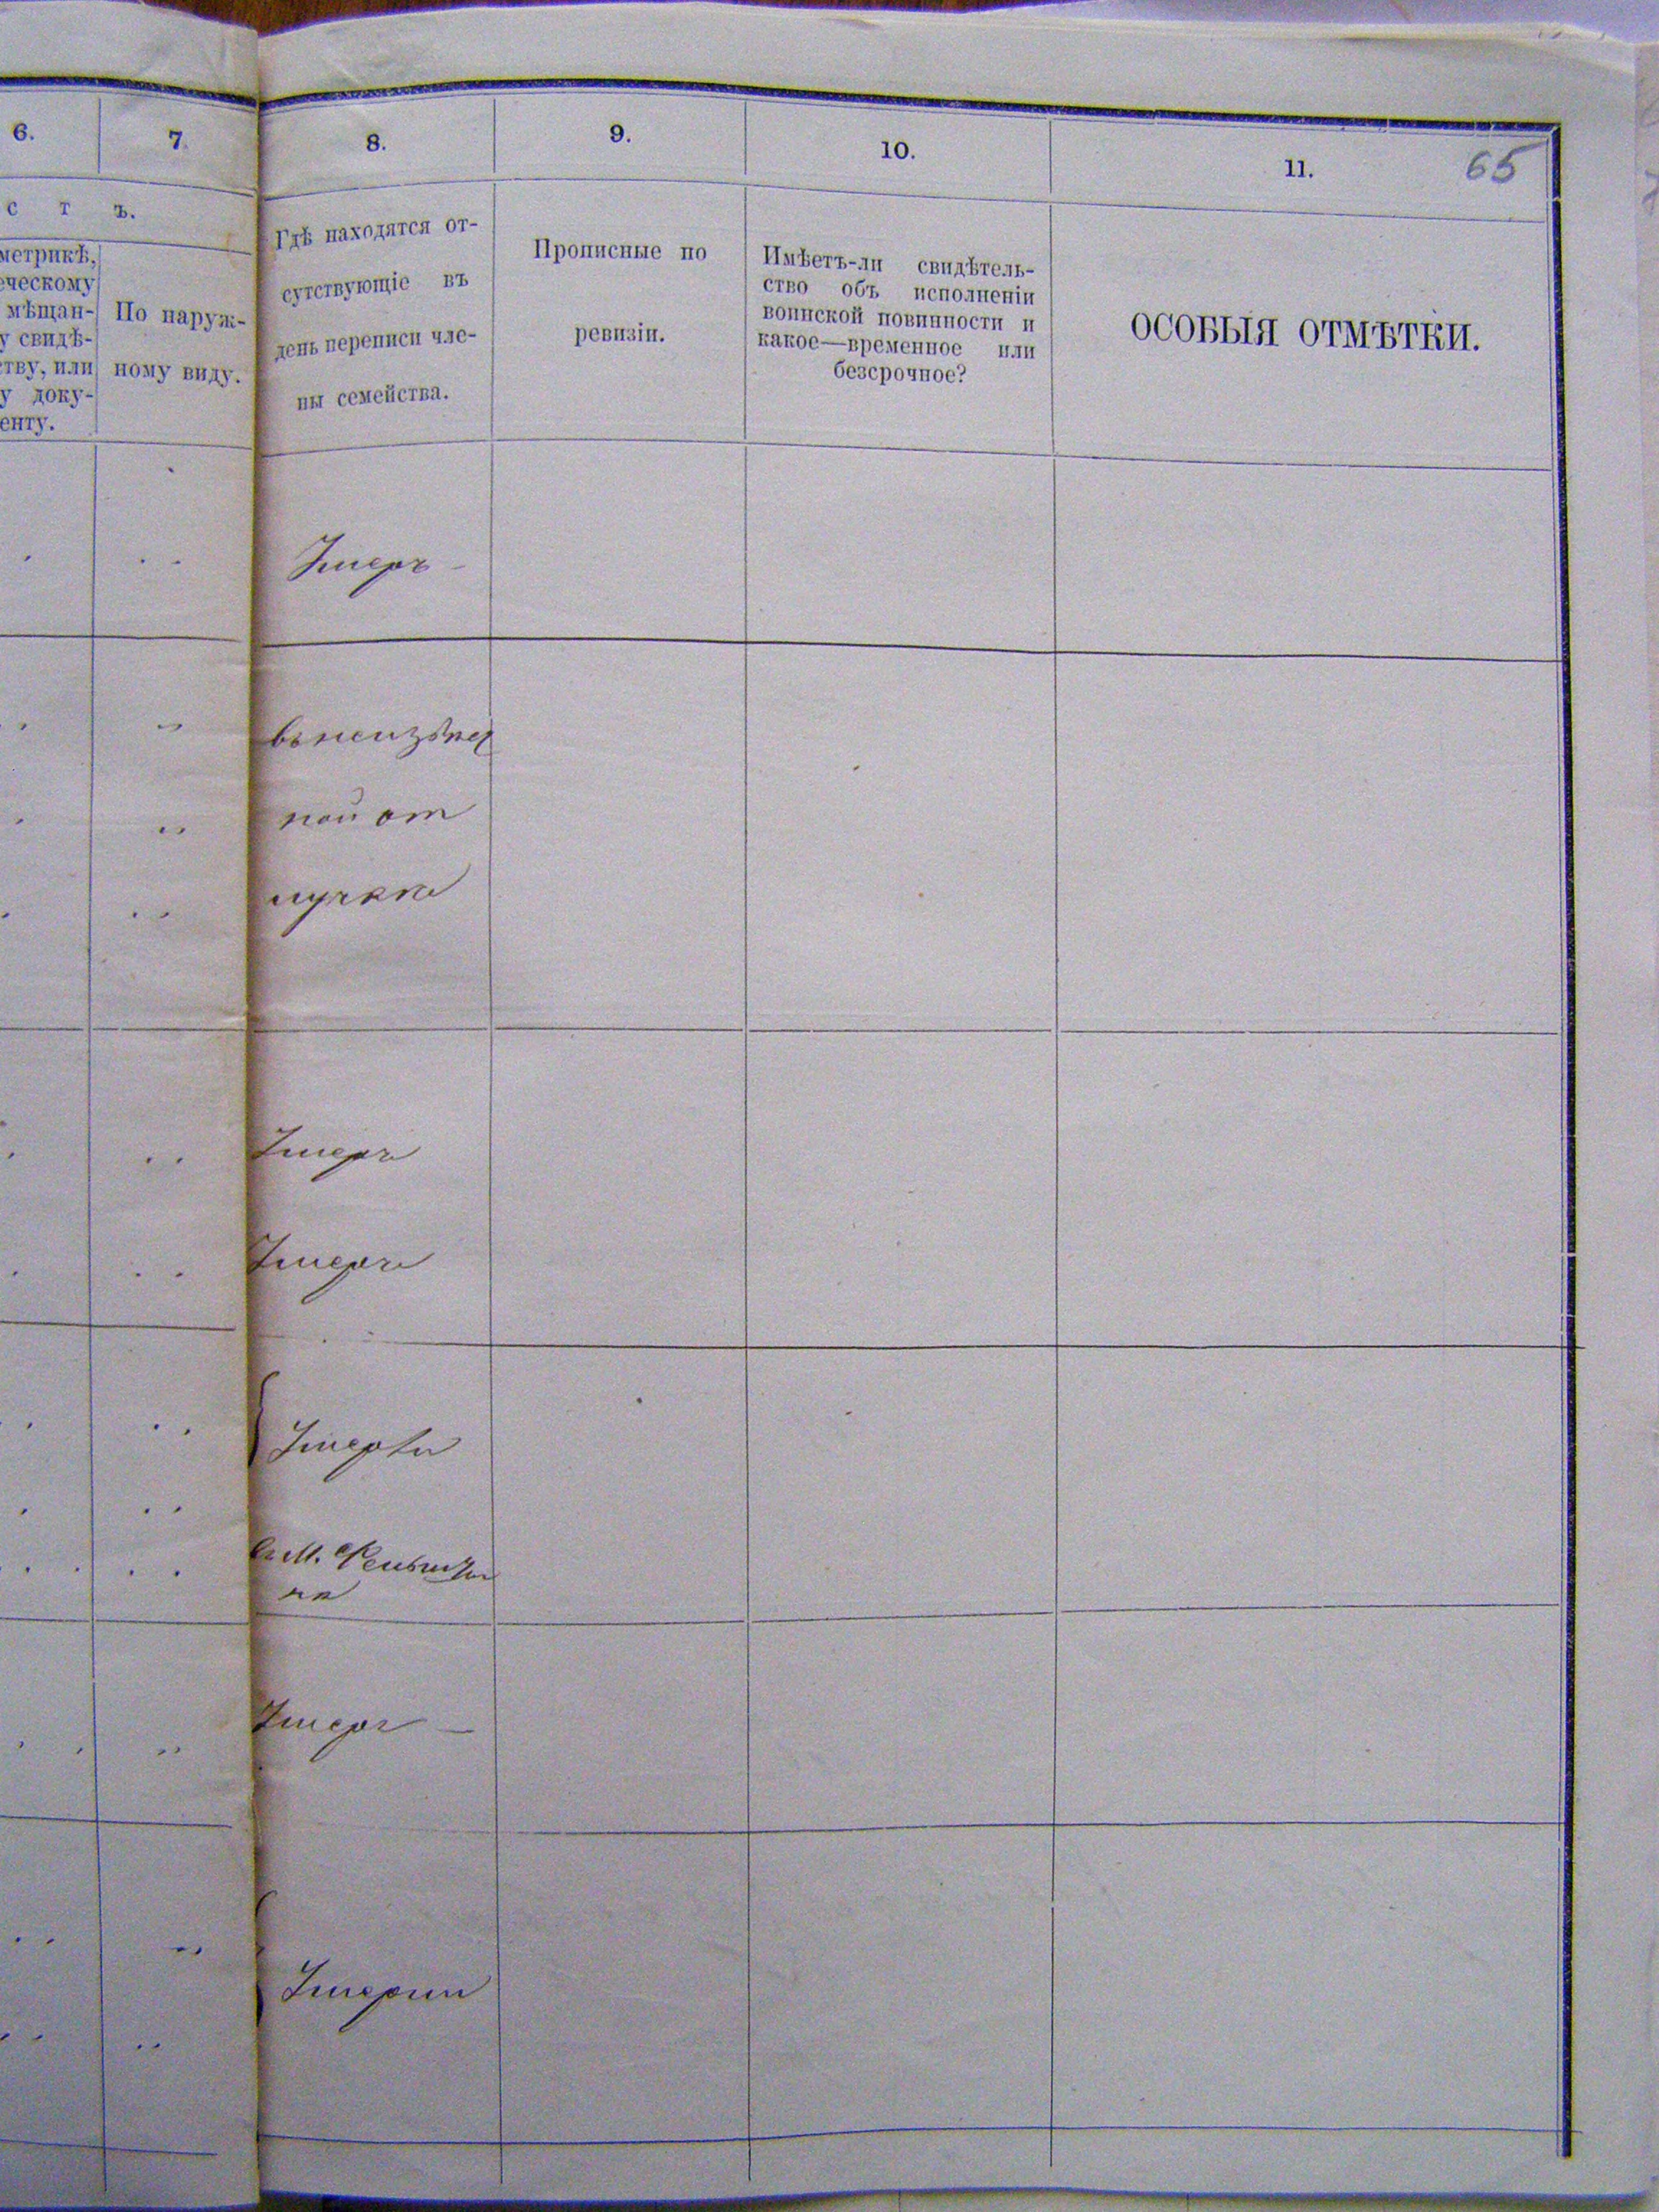 6.
7.
8.
9.
10.
11.
65
с т ъ.
метрикѣ,
еческому
мѣщан-
у свидѣ-
тву, или
у доку-
енту.
По наруж-
ному виду.
Гдѣ находятся от-
сутствующіе въ
день переписи чле-
ны семейства.
Прописные по
ревизіи.
Имѣетъ-ли свидѣтель-
ство объ исполненіи
воинской повинности и
какое—временное или
безсрочное?
ОСОБЫЯ ОТМѢТКИ.
Умеръ
въ неизвѣст
ной от
лучкѣ
Умеръ
Умеръ
Умерли
въ М.
Умеръ
Умерли